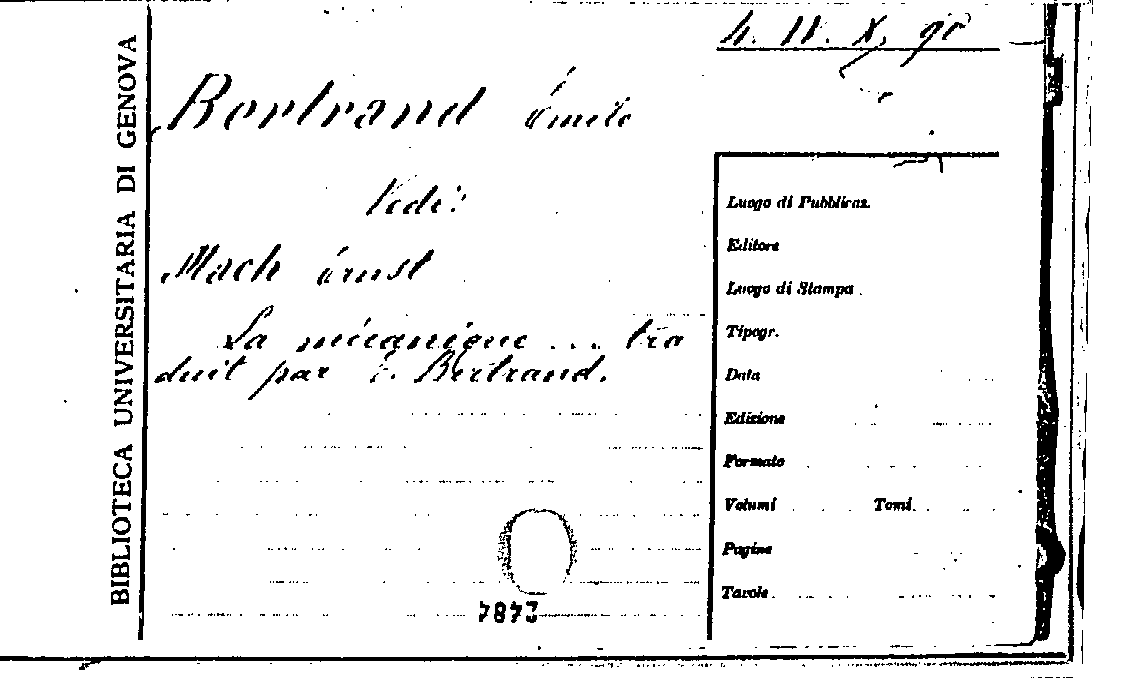 BIBLIOTECA UNIVERSITARIA DI GENOVA
Bertrand émile
Vedi:
Mach érnst
La mécanique ... tra
duit par E. Bertrand.
Luogo di Pubblicaz.
Editore
Luogo di Stampa
Tipogr.
Data
Edizione
Formato
Volumi Tomi
Pagine
Tavole